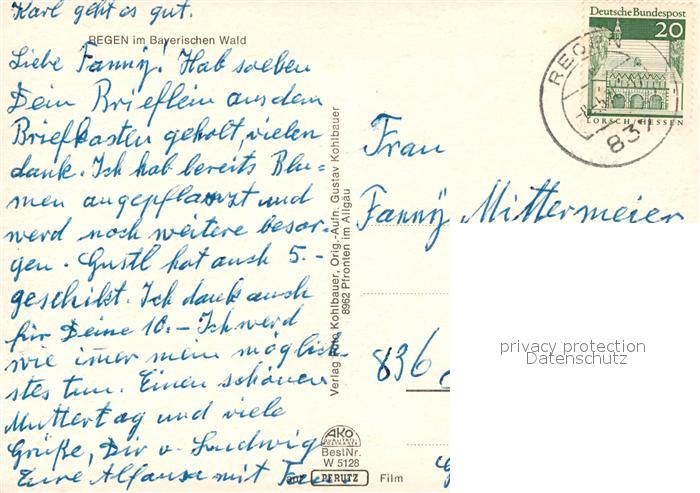 Karl geht es gut.
REGEN im Bayerischen Wald
Liebe Fanny! Hab soeben
Dein Brieflein aus dem
Briefkasten geholt, vielen
dank. Ich hab bereits Blu-
men angepflanzt und
werd noch weitere besor-
gen. Gustl hat auch 5.-
geschikt. Ich dank auch
für Deine 10.- Ich werd
wie imer mein möglich-
stes tun. Einen schönen
Muttertag und viele
Grüße, Dir u. Ludwig
Eure Alfansa mit
Verlag Foto Kohlbauer, Orig. Aufn. Gustav Kohlbauer
8962 Pfronten im Allgäu
AKO
BestNr.
W 5128
auf PERUTZ Film
Deutsche Bundespost
20
LORSCH/HESSEN
REGEN
837
Frau
Fanny Mittermeier
836
privacy protection
Datenschutz